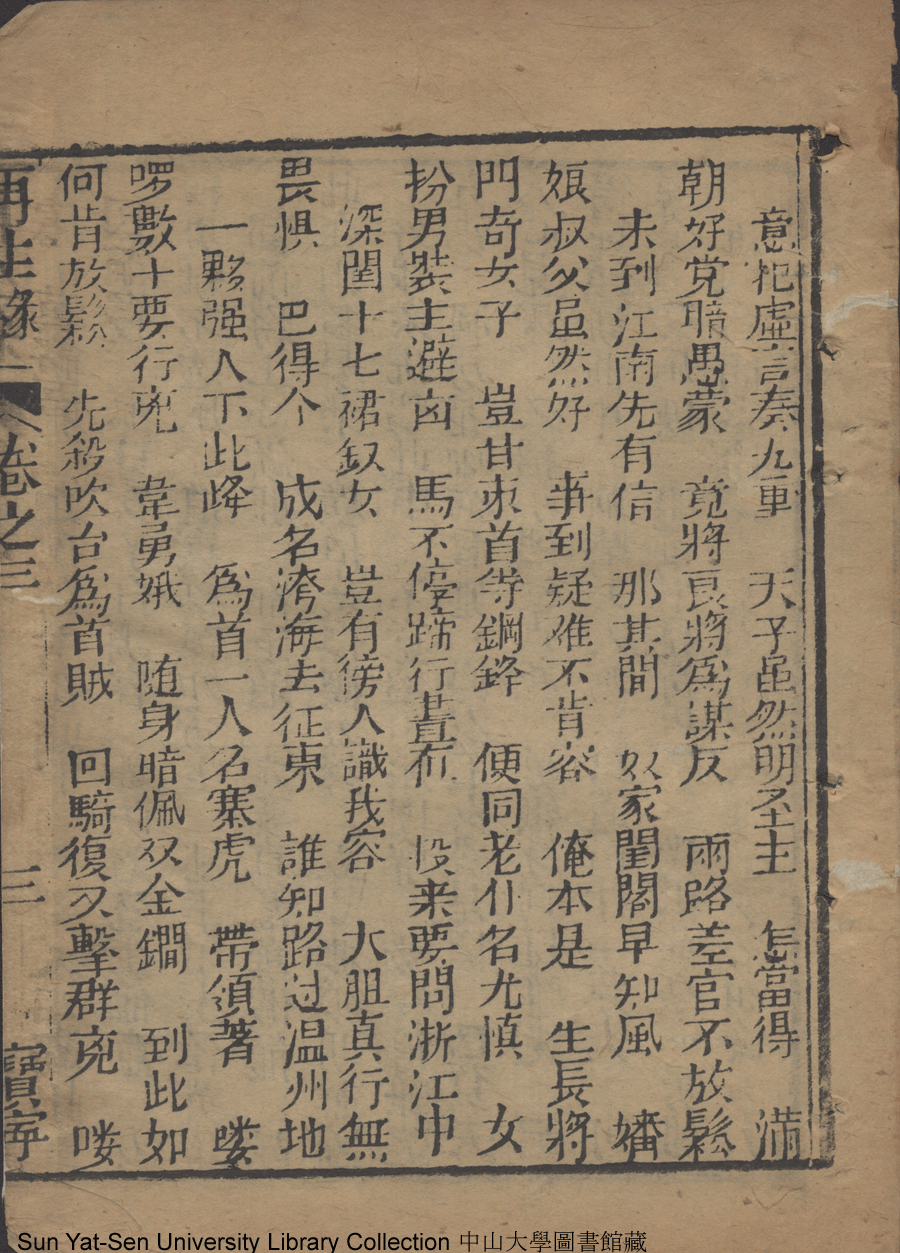 意犯虛言奏九重　天子虽然明圣主　怎當得　滿
朝好党暗愚蒙　竟將良將為謀反　兩路差官不放鬆
未到江南先有信　那其間　奴家閨閣早知風　嬸
娘叔父虽然好　事到疑难不肯容　俺本是　生長將
門奇女子　豈甘束首待鋼鋒　便同老仆名尤慎　女
扮男裝主避凶　馬不停蹄行晝夜　投来要問浙江中
深閨十七裙釵女　豈有傍人識我容　大胆真行無
畏惧　巴得个　成名滂海去征東　誰知路过温州地
一夥强人下此峰　為首一人名寨虎　帶須著　喽
啰數十要行兇　韋勇娥　随身暗佩双金鐧　到此如
何肯放鬆　先殺吹台為首賊　回騎復又擊群兇　喽
再生緣　卷之三　三　寶寧
Sun Yat-Sen University Library Collection 中山大學圖書館藏